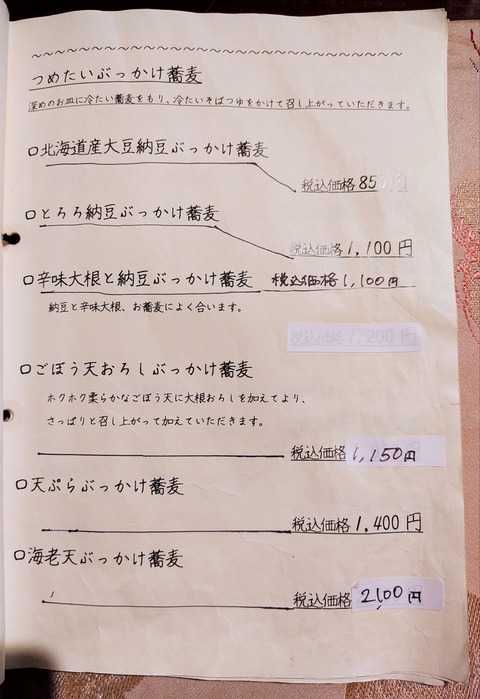 つめたいぶっかけ蕎麦
深めのお皿に冷たい蕎麦をもり、冷たいそばつゆをかけて召し上がっていただきます。
□北海道産大豆納豆ぶっかけ蕎麦
税込価格 850円
□とろろ納豆ぶっかけ蕎麦
税込価格 1,100円
□辛味大根と納豆ぶっかけ蕎麦 税込価格 1,100円
納豆と辛味大根、お蕎麦によく合います。
税込価格 1,200円
□ごぼう天おろしぶっかけ蕎麦
ホクホク柔らかなごぼう天に大根おろしを加えてより、
さっぱりと召し上がって加えていただきます。
税込価格 1,150円
□天ぷらぶっかけ蕎麦
税込価格 1,400円
□海老天ぶっかけ蕎麦
税込価格 2,100円